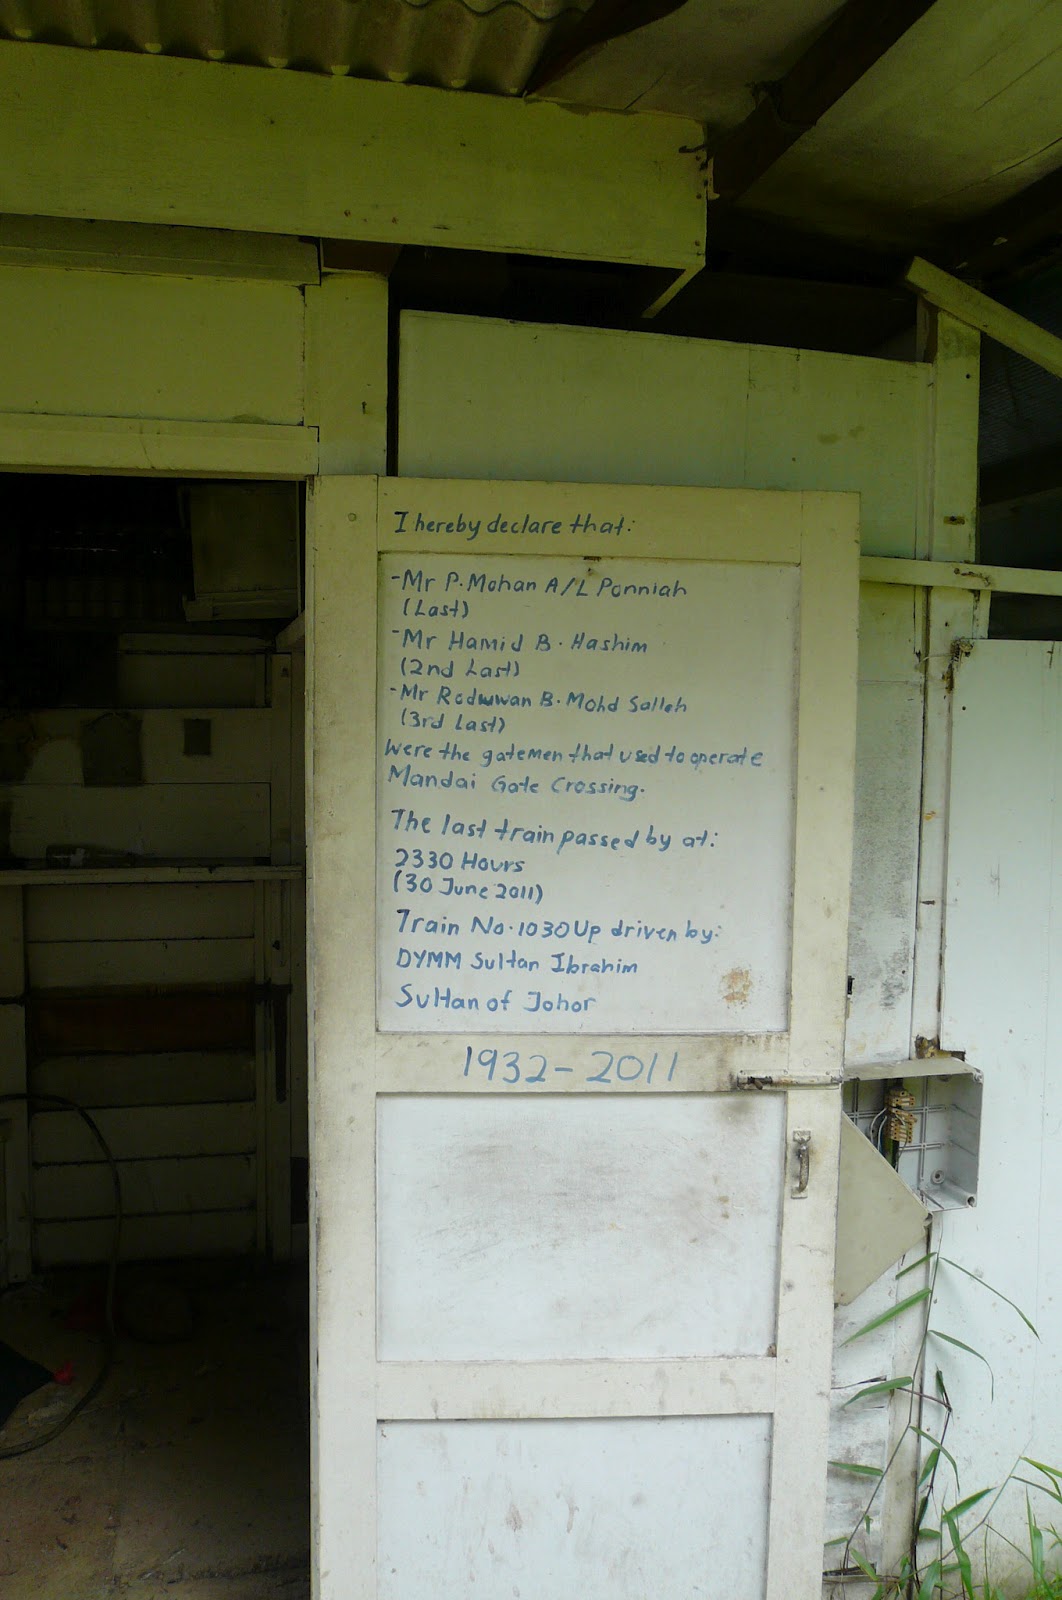 I hereby declare that:
-Mr P. Mohan A/L Ponniah
(Last)
-Mr Hamid B. Hashim
(2nd Last)
-Mr Radwwan B. Mohd Salleh
(3rd Last)
Were the gatemen that used to operate
Mandai Gate Crossing.
The last train passed by at:
2330 Hours
(30 June 2011)
Train No. 1030Up driven by:
DYMM Sultan Ibrahim
Sultan of Johor
1932-2011